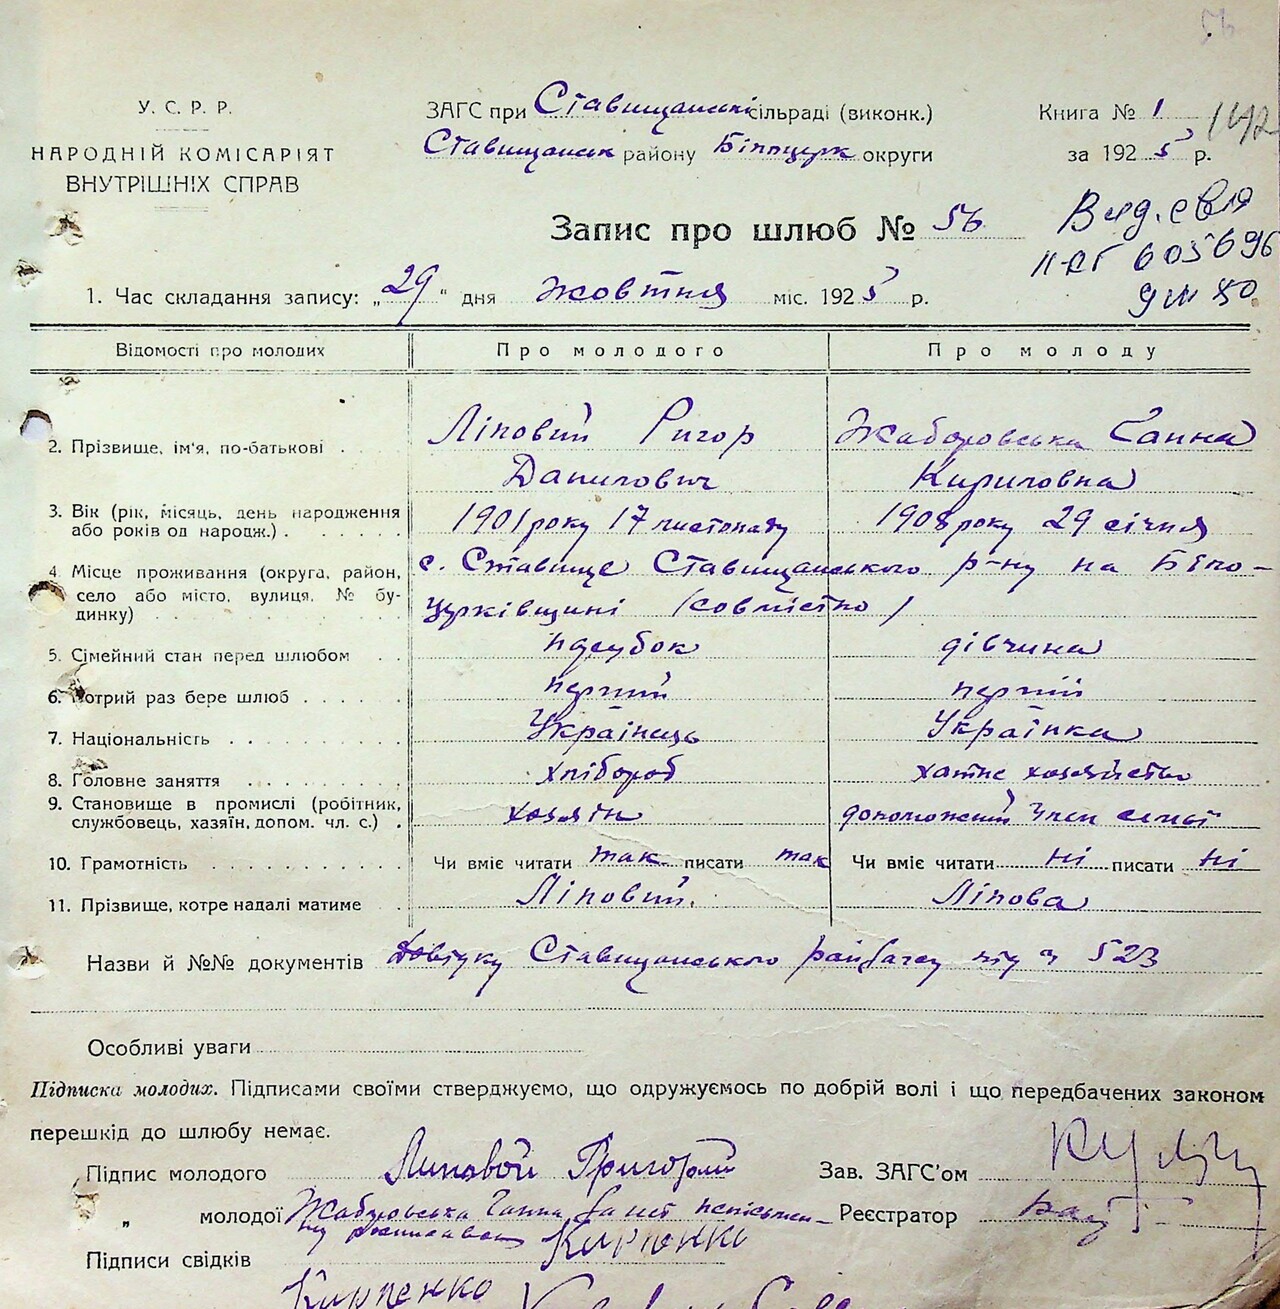 56
У. С. Р. Р.
НАРОДНІЙ КОМІСАРІЯТ
ВНУТРІШНІХ СПРАВ
ЗАГС при Ставищанські сільраді (виконк.)
Ставищанськ району Білоцерк округи
Книга № 1
142
за 192 5 р.
Запис про шлюб № 56
Вид. св
605696
80
1. Час складання запису: „29“ дня жовтня міс. 192 5 р.
Відомості про молодих Про молодого Про молоду
2. Прізвище, ім'я, по-батькові . Ліповий Ригор Данилович Жаборовська Ганна Кириловна
3. Вік (рік, місяць, день народження або років од народж.) . . . . . . 1901 року 17 листопаду 1908 року 29 січня
4. Місце проживання (округа, район, село або місто, вулиця, № будинку) с. Ставище Ставищанського р-ну на Білоцерківщині (совмістно)
5. Сімейний стан перед шлюбом . . парубок дівчина
6. Котрий раз бере шлюб . . . . . перший перший
7. Національність . . . . . . . . . Українець Українка
8. Головне заняття . . . . . . . . хлібороб хатнє хозяйство
9. Становище в промислі (робітник, службовець, хазяїн, допом. чл. с.) . хозяїн допоможений член семьї
10. Грамотність . . . . . . . . . . Чи вміє читати так писати так Чи вміє читати ні писати ні
11. Прізвище, котре надалі матиме . Ліповий. Ліпова
Назви й №№ документів довідку Ставищанського райзагсу під № 523
Особливі уваги
Підписка молодих. Підписами своїми стверджуємо, що одружуємось по добрій волі і що передбачених законом
перешкід до шлюбу немає.
Підпис молодого Липовой Григорий Зав. ЗАГС'ом
„ молодої Жаборовська Ганна За неї неписьмен- Реєстратор
Підписи свідків
Карпенко